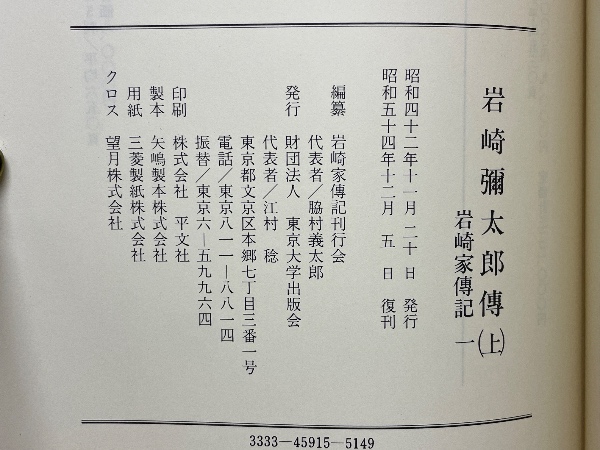 岩崎彌太郎傳(上)
岩崎家傳記 一
昭和四十二年十一月二十日 発行
昭和五十四年十二月 五 日 復刊
編纂 岩崎家傳記刊行会
代表者/脇村義太郎
発行 財団法人 東京大学出版会
代表者/江村 稔
東京都文京区本郷七丁目三番一号
電話/東京八一一―八八一四
振替/東京六―五九九六四
印刷 株式会社 平文社
製本 矢嶋製本株式会社
用紙 三菱製紙株式会社
クロス 望月株式会社
3333―45915―5149